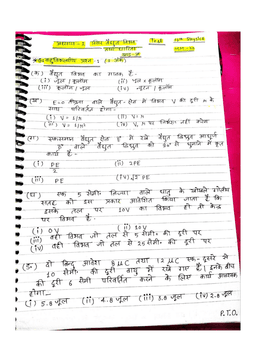 अध्याय - 2 स्थिर वैद्युत विभव Test 12th Physics
तथा धारिता
★ बहुविकल्पीय प्रश्न - (1 अंक)
(क) वैद्युत विभव का मात्रक है -
(i) जूल / कूलॉम (ii) जूल × कूलॉम
(iii) कूलॉम / जूल (iv) न्यूटन / कूलॉम
(ख) E=0 तीव्रता वाले वैद्युत क्षेत्र में विभव V की दूरी r के
साथ
(i) V ∝ 1/r (ii) V ∝ r
(iii) V ∝ 1/r² (iv) V, r पर निर्भर नहीं करता
(ग) एकसमान वैद्युत क्षेत्र E में रखे वैद्युत द्विध्रुव आघूर्ण
P वाले वैद्युत द्विध्रुव को 90° से घुमाने में कृत
कार्य है -
(i) PE (ii) 2PE
2
(iii) PE (iv) √2 PE
(घ) एक 5 सेमी त्रिज्या वाले धातु के खोखले गोलीय
को इस प्रकार आवेशित किया जाता है कि
इसके तल पर 10V का विभव हो तो केन्द्र
पर विभव है -
(i) 0 V (ii) 10 V
(iii) वही विभव जो तल से 5 सेमी० की दूरी पर
(iv) वही विभव जो तल से 25 सेमी० की दूरी पर
(ङ) दो बिन्दु आवेश 8 μC तथा 12 μC एक-दूसरे से
10 सेमी० की दूरी वायु में रखे गए हैं। इनके बीच
की दूरी 6 सेमी परिवर्तित करने के लिए कार्य आवश्यक
होगा -
(i) 5.8 जूल (ii) 4.8 जूल (iii) 3.8 जूल (iv) 2.8 जूल
P.T.O.